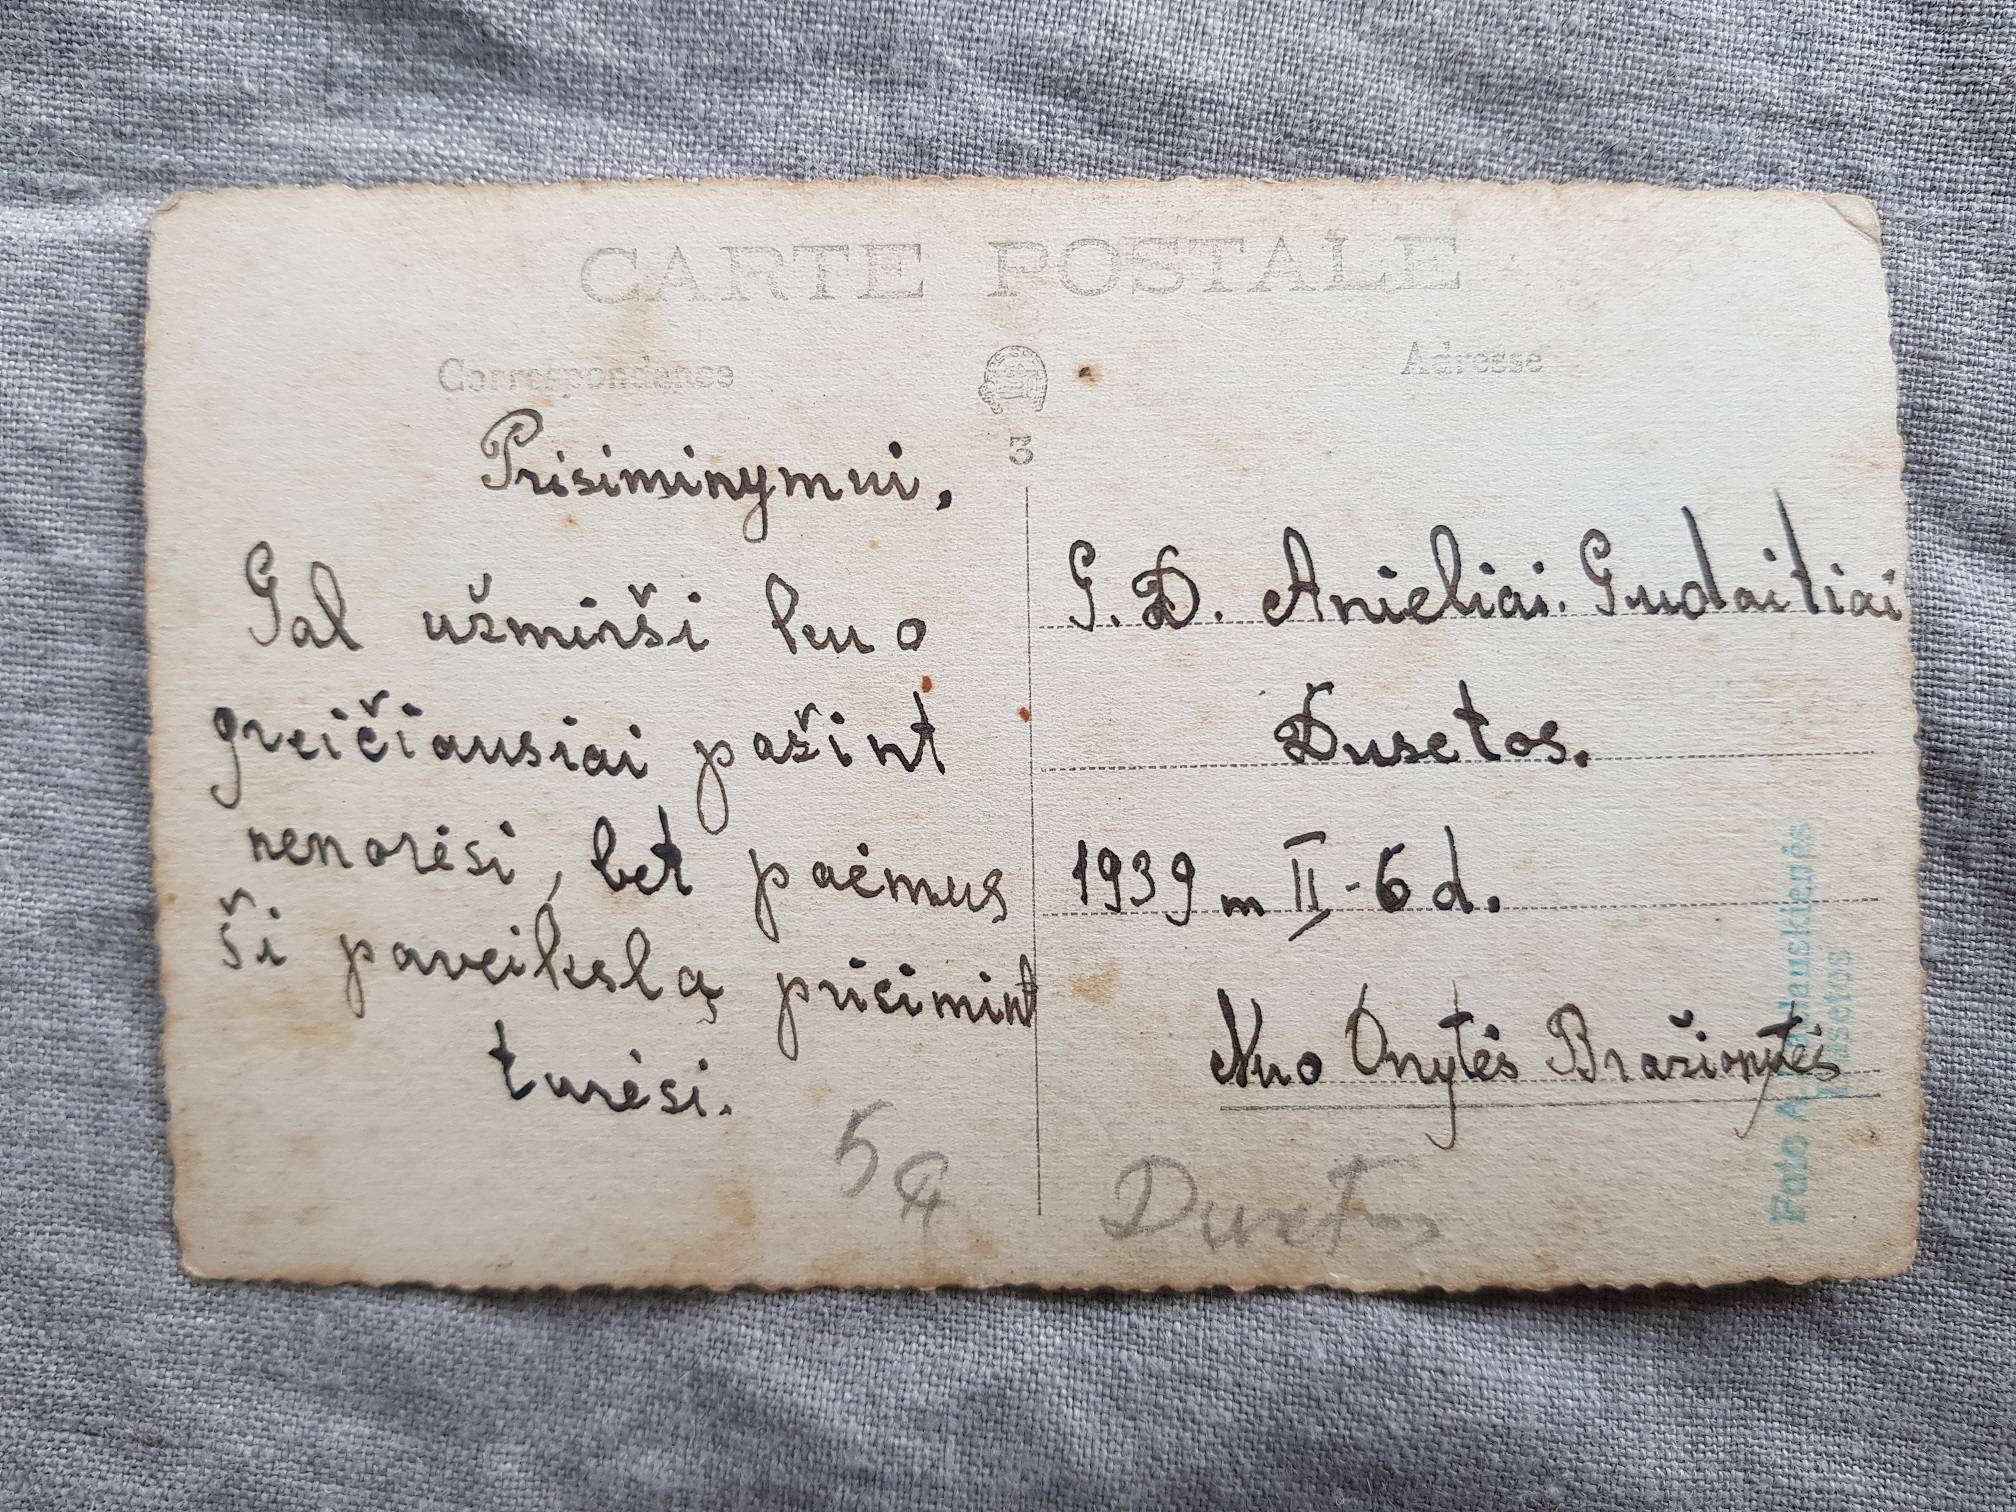 CARTE POSTALE
Correspondance
Adresse
3
Prisiminymui,
Gal užmirši kuo
greičiausiai pažint
nenorėsi, bet paėmus
ši paveikslą pricimint
turėsi.
G. D. Anieliai. Gudaitiai
Dusetos.
1939 m II-6 d.
Nuo Onytės Bražionytės
5
Dusetos
Foto A.
Dusetos